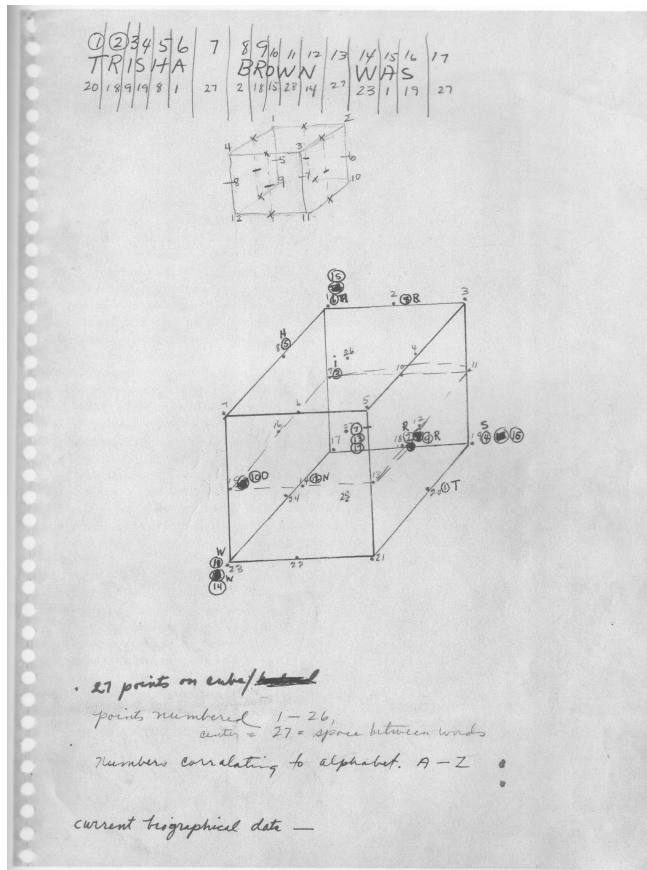 1 2 3 4 5 6 7 8 9 10 11 12 13 14 15 16 17
T R I S H A B R O W N W A S
20 18 9 19 8 1 27 2 18 15 23 14 27 23 1 19 27
1 2
4 3
5 6
8 9 7 10
12 11
15
1 6 A 2 8 B 3
H
8 5
26 4
I
9 3 10 11
7 6 5
16
7
13
17
17 18 R 2 9 R 12 S
19 4 16
10 O 12 N 13
24 25 20 1 T
W
23 22 21
W
14
27 points on cube/
points numbered 1 – 26,
center = 27 = space between words
numbers corralating to alphabet. A – Z
current biographical data —